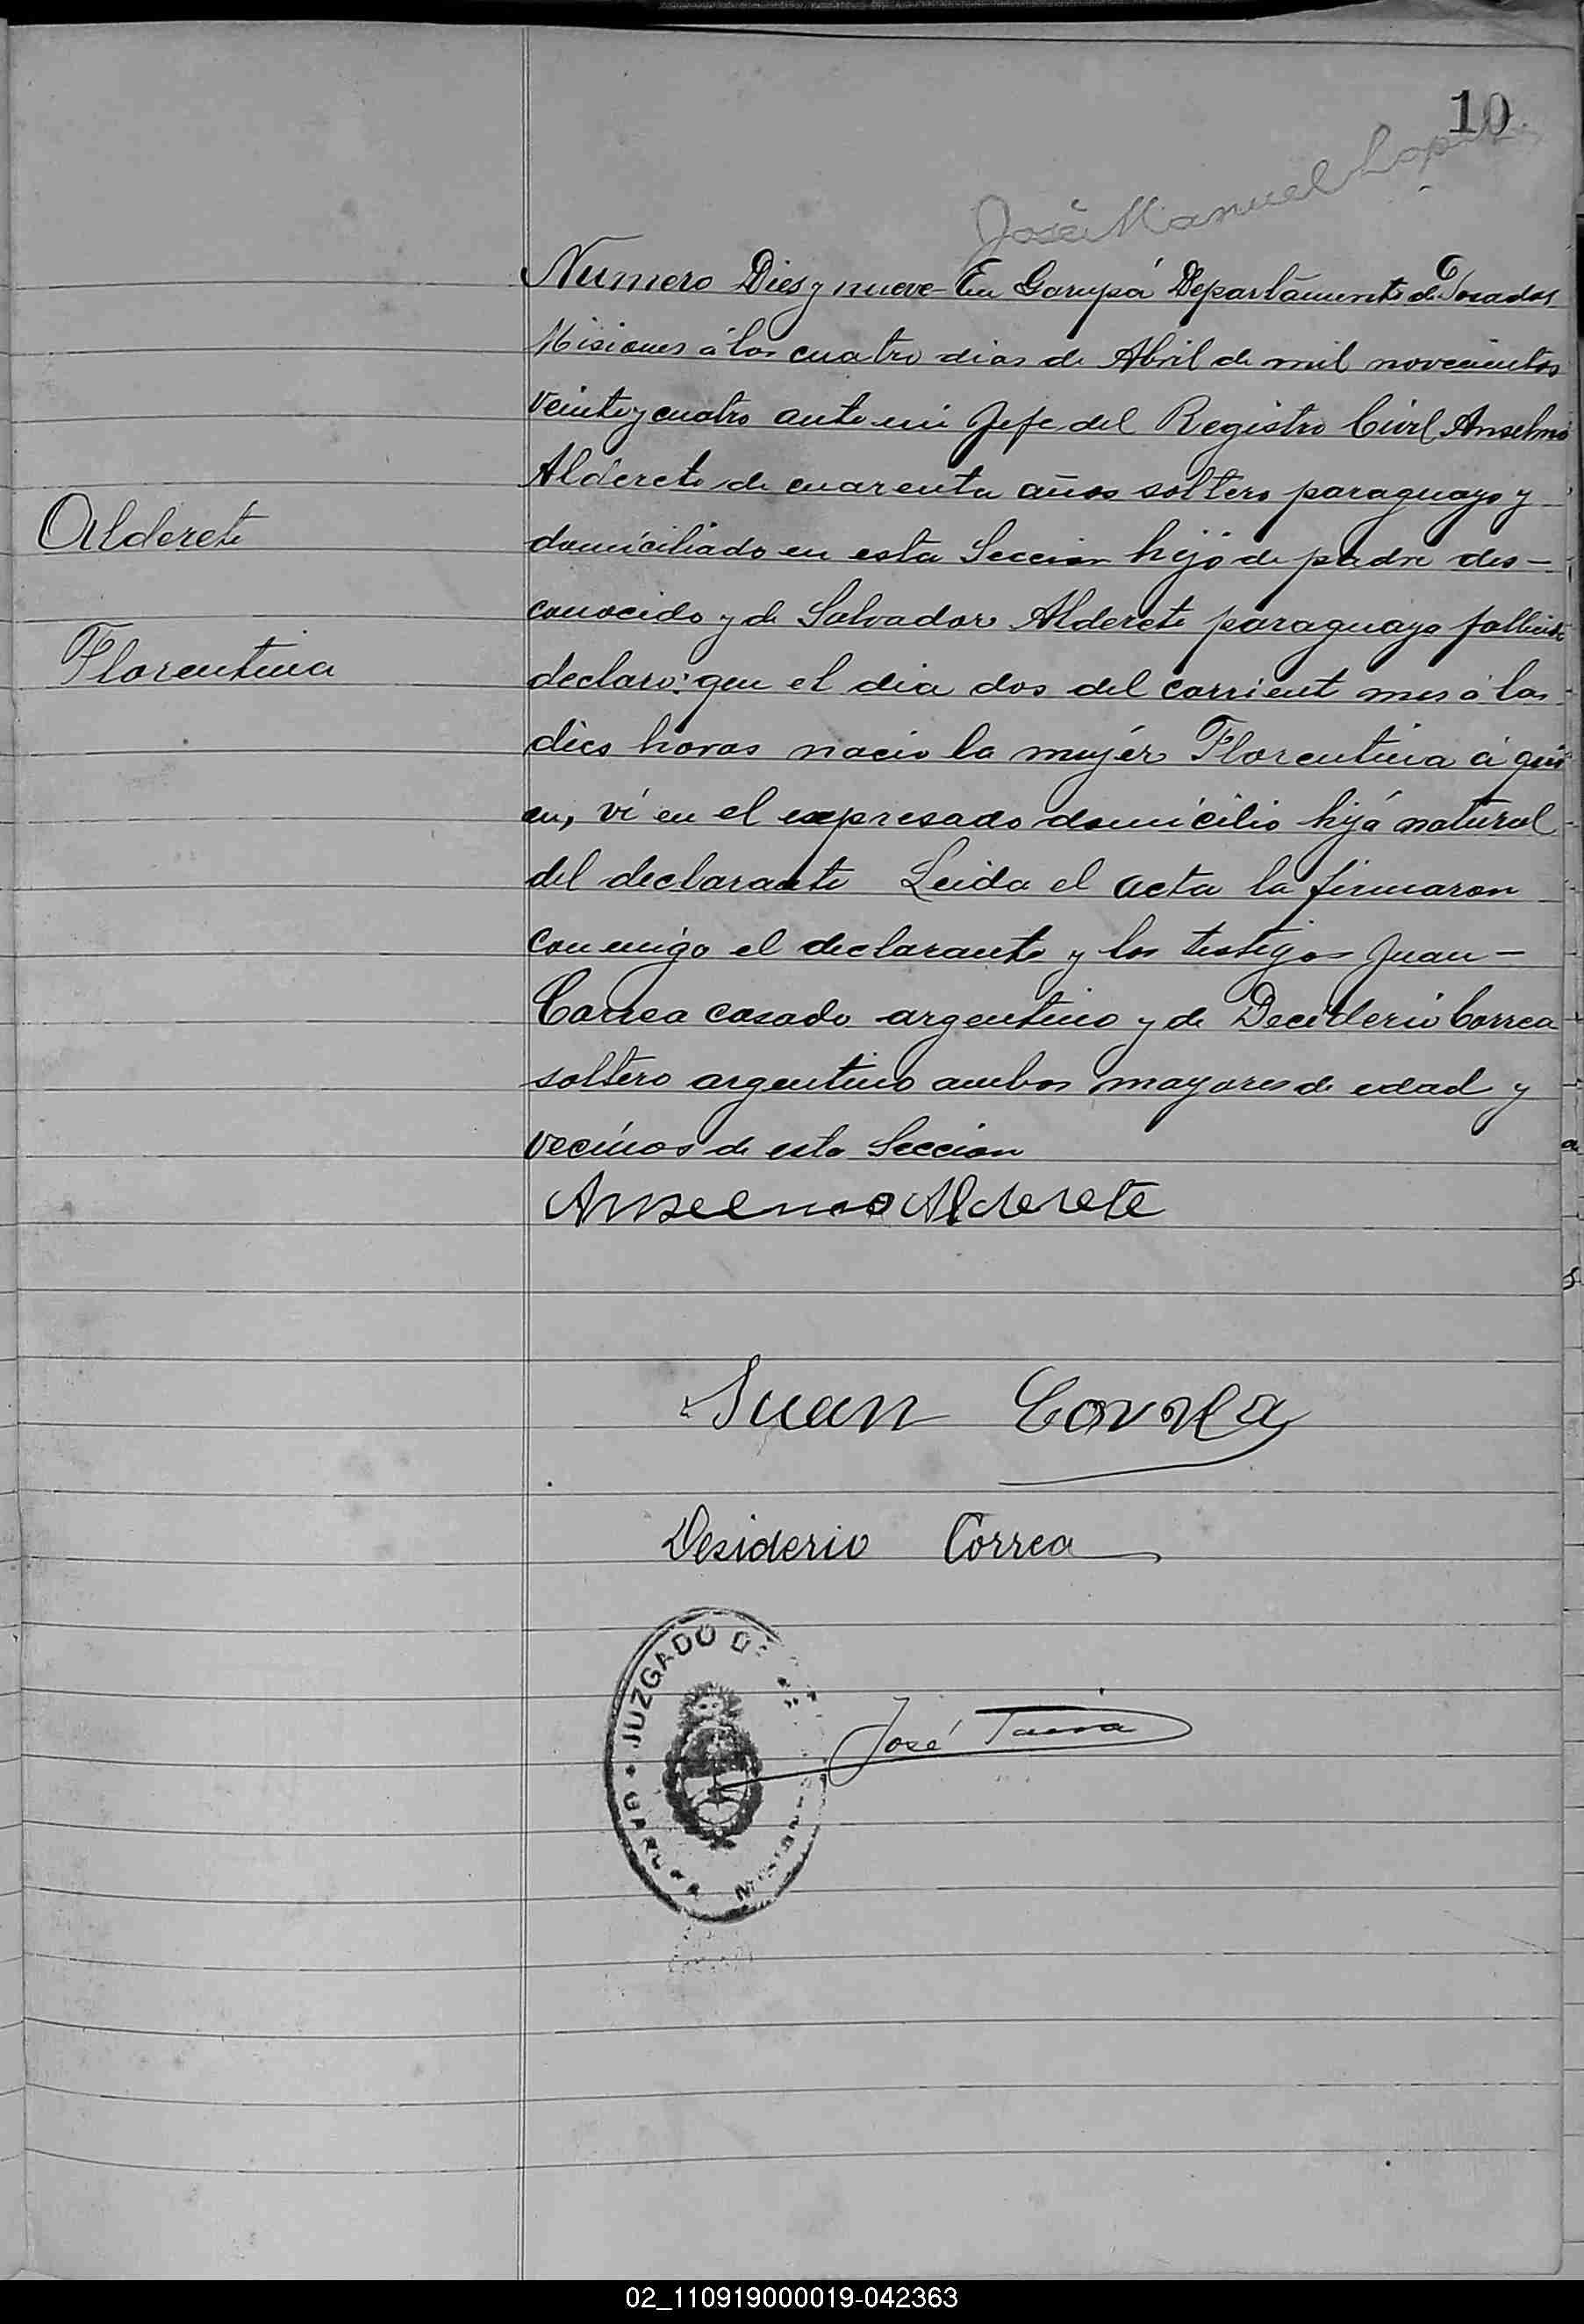 10
José Manuel Lopez
Numero Dies y nueve - En Garupá Departamento de Posadas
Misiones á los cuatro dias de Abril de mil novecientos
veinte y cuatro ante mi Jefe del Registro Civil Anselmo
Alderete de cuarenta años soltero paraguayo y
Alderete
domiciliado en esta Seccion hijo de padre des-
conocido y de Salvadora Alderete paraguaya
Florentina
declaro: que el dia dos del corrient mes á las
dies horas nacio la mujér Florentina á qui
en, ví en el expresado domicilio hijá natural
del declarante Leida el acta la firmaron
con migo el declarante y los testigos Juan -
Correa casado argentino y de Deciderio Correa
soltero argentino ambos mayores de edad y
vecinos de esta Seccion
Anselmo Alderete
Juan Correa
Desiderio Correa
JUZGADO DE
José
GARUPA MISIONES
02_110919000019-042363